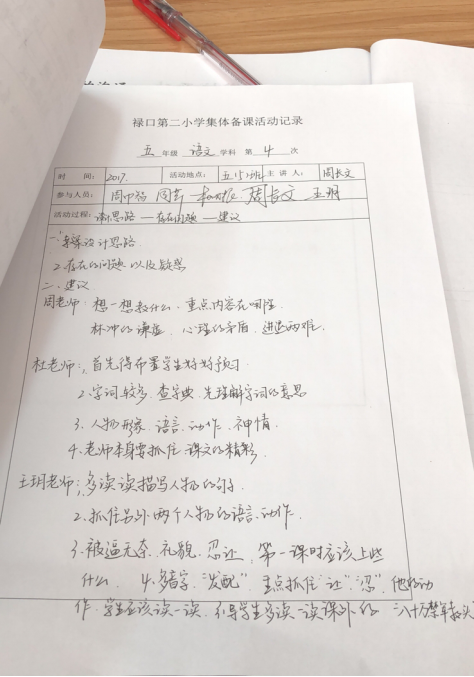 禄口第二小学集体备课活动记录
五 年级 语文 学科 第 4 次
时间： 2017. 活动地点： 五(5)班 主讲人： 周长文
参与人员： 周长文 王玥
活动过程： 谈思路—存在问题—建议
一、 设计思路
2. 存在的问题以及疑惑
二、建议
周老师：想一想教什么，重点内容在哪里
林冲的谦虚，心理的矛盾，进退两难．
杜老师：1、首先得布置学生好好预习
2、字词较多，查字典，先理解字词的意思
3、人物形象、语言、动作、神情．
4、老师本身要抓住课文的精彩
王玥老师：1、多读读描写人物的句子
2、抓住另外两个人物的语言、动作．
3、被逼无奈、礼貌、忍让，第一课时应该上些
什么． 4、多音字，"发配" 重点抓住"让""忍"，他的动
作．学生应该读一读，引导学生多读一读课外的"八十万禁军教头"